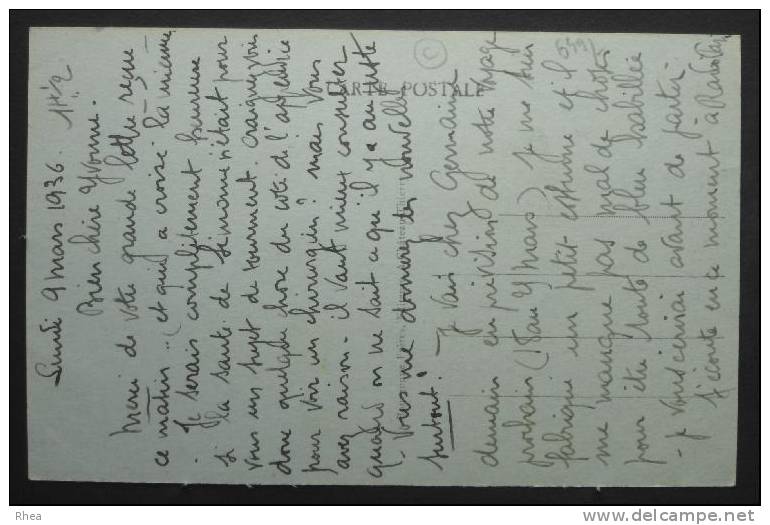 Lundi 9 mars 1936. 14h½
Bien chère Yvonne.
Merci de votre grande lettre reçue
ce matin - (et qui a croisé la mienne)
- Je serais complètement heureuse
si la santé de Simone n'était pour
vous un sujet de tourment. Craignez-vous
donc quelque chose du côté de l'appendice
pour voir un chirurgien? mais vous
avez raison - il vaut mieux consulter
quand on ne sait ce qu'il y a au juste
- Vous me donnerez des nouvelles
surtout!
- Je vais chez Germaine
demain en prévision de notre voyage
prochain (18 au 29 mars) Je me suis
fabriqué un petit costume et il
me manque pas mal de choses
pour être toute de bleu habillée
- Je vous écrirai avant de partir -
J'écoute en ce moment à Radio
CARTE POSTALE
©
Rhea
www.delcampe.net